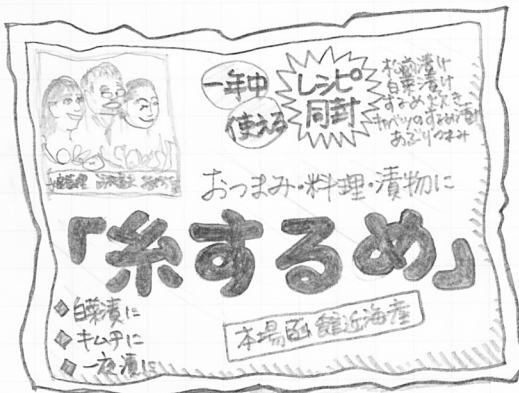 一年中
使える
レシピ
同封
松前漬け
白菜漬け
キャベツのするめ漬け
おつまみ・料理・漬物に
「糸するめ」
◆白菜漬に
◆キムチに
◆一夜漬に
本場函館近海産